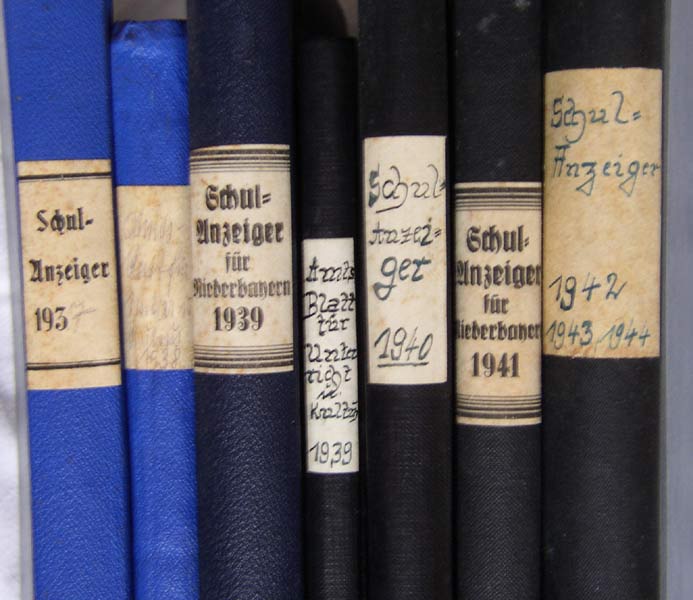 Schul-
Anzeiger
1937
1938
Schul=
Anzeiger
für
Niederbayern
1939
Amts
Blatt
für
Unter
richt
u.
Kultus
1939
Schul-
Anzei-
ger
1940
Schul=
Anzeiger
für
Niederbayern
1941
Schul=
Anzeiger
1942
1943, 1944